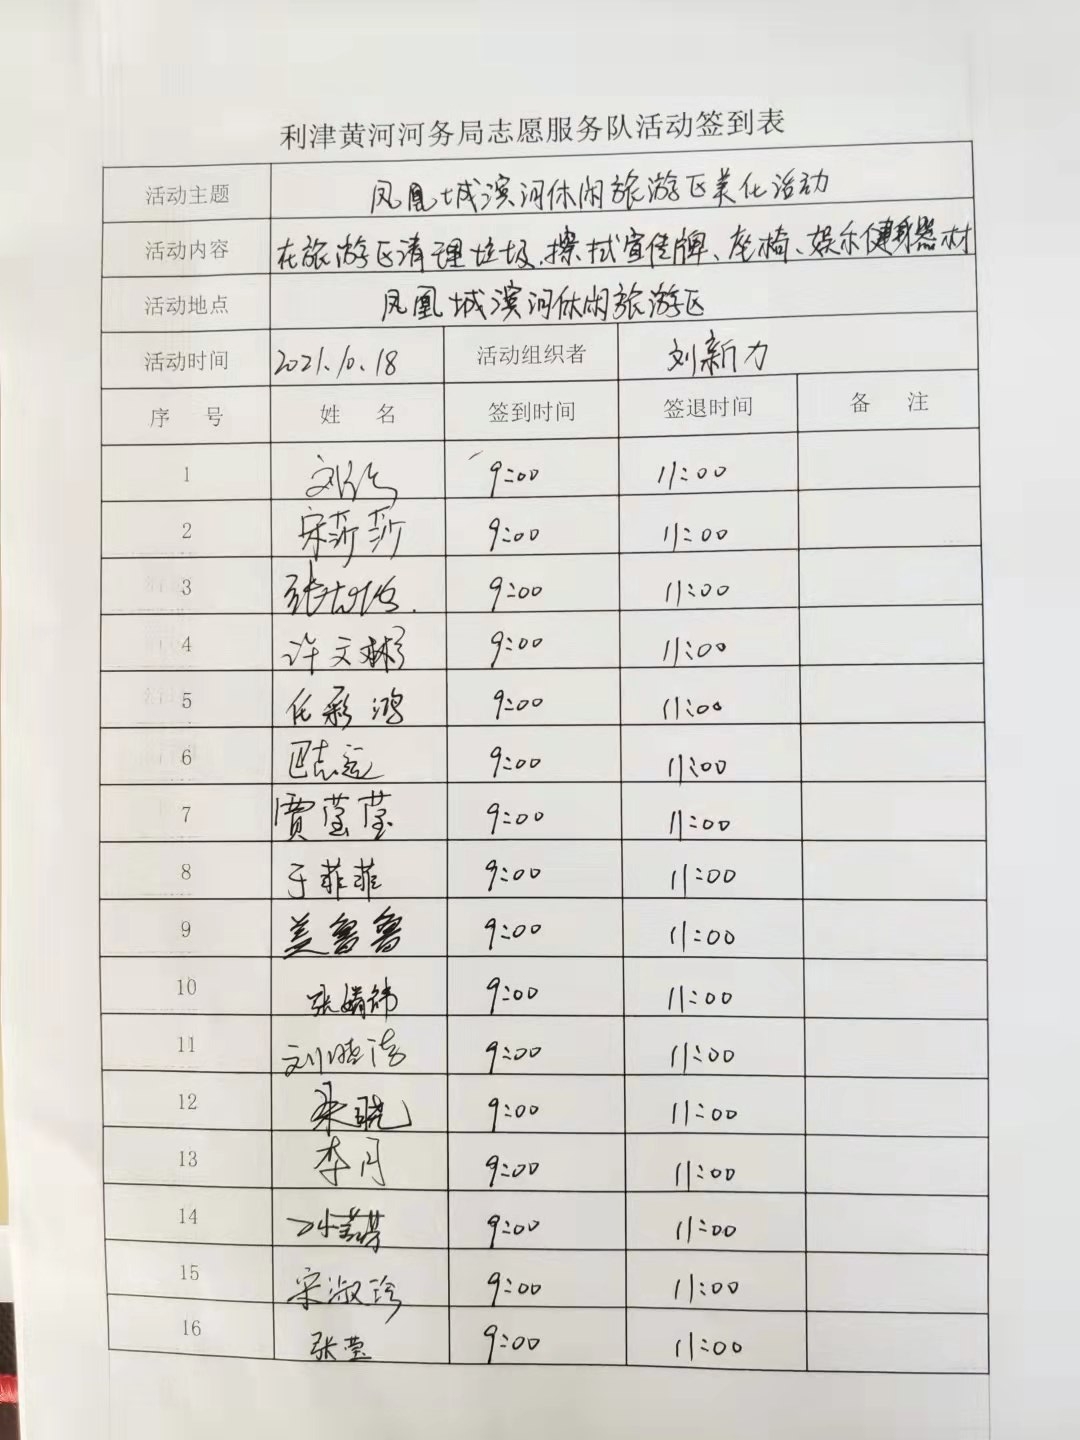 利津黄河河务局志愿服务队活动签到表
活动主题 凤凰城滨河休闲旅游区美化活动
活动内容 在旅游区清理垃圾、擦拭宣传牌、座椅、娱乐健身器材
活动地点 凤凰城滨河休闲旅游区
活动时间 2021.10.18 活动组织者 刘新力
序号 姓名 签到时间 签退时间 备注
1 9:00 11:00
2 宋莎莎 9:00 11:00
3 9:00 11:00
4 许文彬 9:00 11:00
5 任彩鸿 9:00 11:00
6 巴志远 9:00 11:00
7 贾莹莹 9:00 11:00
8 于菲菲 9:00 11:00
9 9:00 11:00
10 张婧祎 9:00 11:00
11 9:00 11:00
12 9:00 11:00
13 李月 9:00 11:00
14 9:00 11:00
15 宋淑珍 9:00 11:00
16 张莹 9:00 11:00